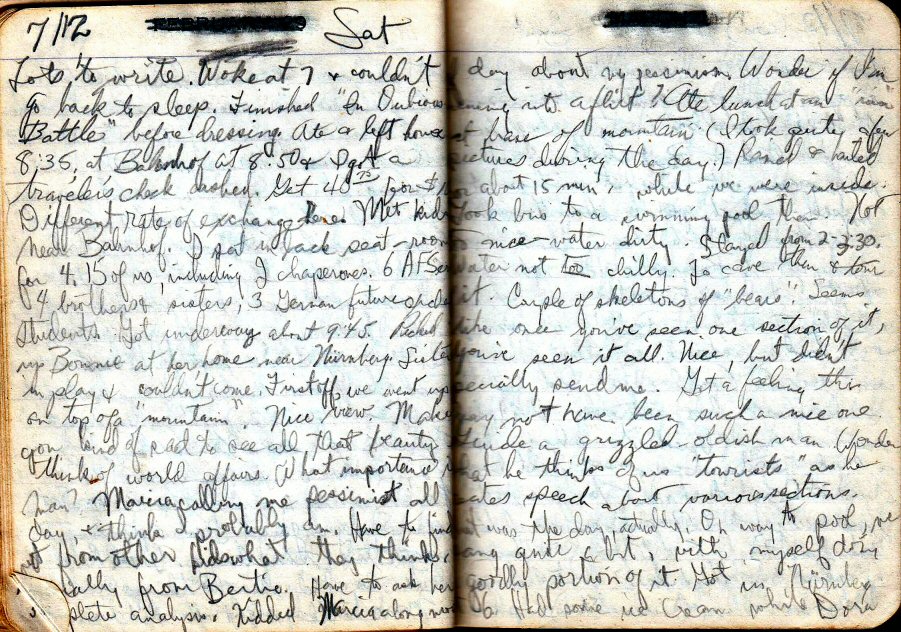 7/12 Sat
Lots to write. Woke at 7 & couldn't
go back to sleep. Finished "In Dubious
Battle" before dressing. Ate & left house
8:35, at Bahnhof at 8:50 & I got a
traveler's check cashed. Get 40 for
Different rate of exchange here. Met kids
near Bahnhof. I sat in back seat - room
for 4. 15 of us, including 2 chaperones. 6 AFSer
4 brothers & sisters, 3 German future
students. Got underway about 9:45. Picked
up Bonnie at her home near Nürnberg. Sister
in play & couldn't come. First off, we went up
on top of a "mountain". Nice view. Makes
you kind of sad to see all that beauty
think of world affairs. What importance is
man? Marcia calling me pessimist all
day, & I think I probably am. Have to find
out from other kids what they think,
ially from Bertie. Have to ask her
plete analysis. Kidded Marcia along most
day about my pessimism. Wonder if I'm
ening into a flirt? Ate lunch at an "inn"
at base of mountain. (I took quite a few
pictures during the day.) Rained & hailed
for about 15 min. while we were inside.
Took bus to a swimming pool then. Hot
nice - water dirty. Stayed from 2-3:30.
water not too chilly. To cave then & tour
it. Couple of skeletons of "bears". Seems
like once you've seen one section of it,
you've seen it all. Nice, but didn't
ecially send me. Got a feeling this
may not have been such a nice one.
Guide a grizzled oldish man. Wonder
what he thinks of us "tourists" as he
speech about various sections.
was the day, actually. On way to pool, we
sang quite a bit, with myself doing
goodly portion of it. Got in Nürnberg
6. Had some ice cream while Dora